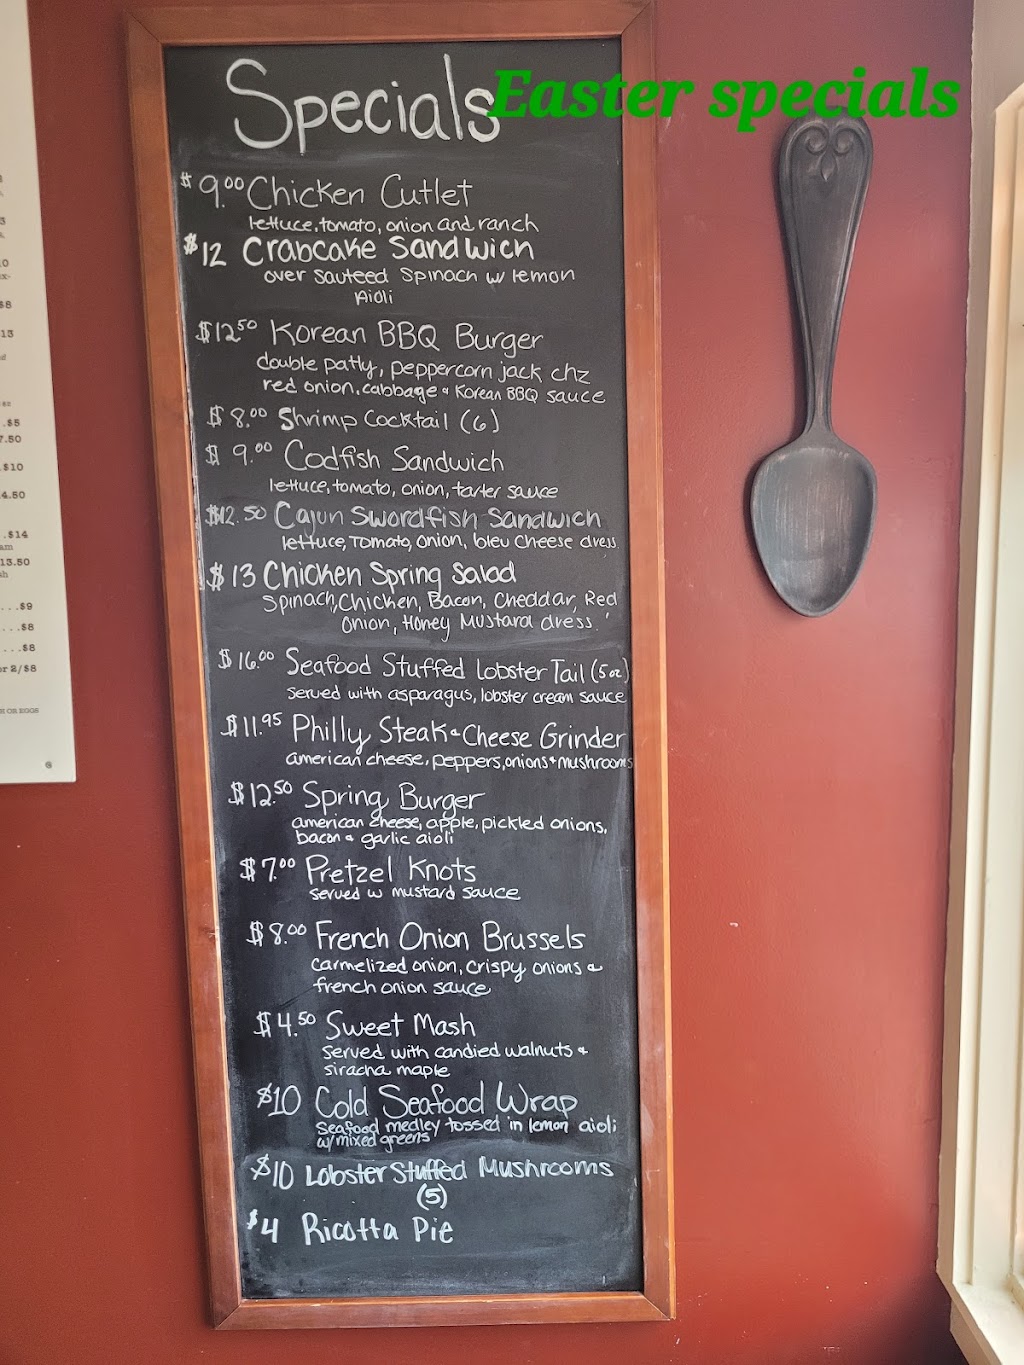 Specials
Easter specials
$ 9.00 Chicken Cutlet
lettuce, tomato, onion and ranch
$12 Crabcake Sandwich
over Sauteed Spinach w/ lemon
Aioli
$12.50 Korean BBQ Burger
double patty, peppercorn jack chz
red onion, cabbage & Korean BBQ sauce
$ 8.00 Shrimp Cocktail (6)
$ 9.00 Codfish Sandwich
lettuce, tomato, onion, tarter sauce
$12.50 Cajun Swordfish Sandwich
lettuce, Tomato, onion, bleu cheese dress.
$13 Chicken Spring Salad
Spinach, Chicken, Bacon, Cheddar, Red
Onion, Honey Mustard dress.
$16.00 Seafood Stuffed Lobster Tail (5oz)
served with asparagus, lobster cream sauce
$11.95 Philly Steak & Cheese Grinder
american cheese, peppers, onions + mushrooms
$12.50 Spring Burger
american cheese, apple, pickled onions,
bacon & garlic aioli
$7.00 Pretzel Knots
served w mustard sauce
$8.00 French Onion Brussels
carmelized onion, crispy onions &
french onion sauce
$4.50 Sweet Mash
served with candied walnuts +
siracha maple
$10 Cold Seafood Wrap
Seafood medley tossed in lemon aioli
w/ mixed greens
$10 Lobster Stuffed Mushrooms
(5)
$4 Ricotta Pie
$8
13
.$5
7.50
$10
4.50
.$14
13.50
...$9
...$8
...$8
or 2/$8
H OR EGGS